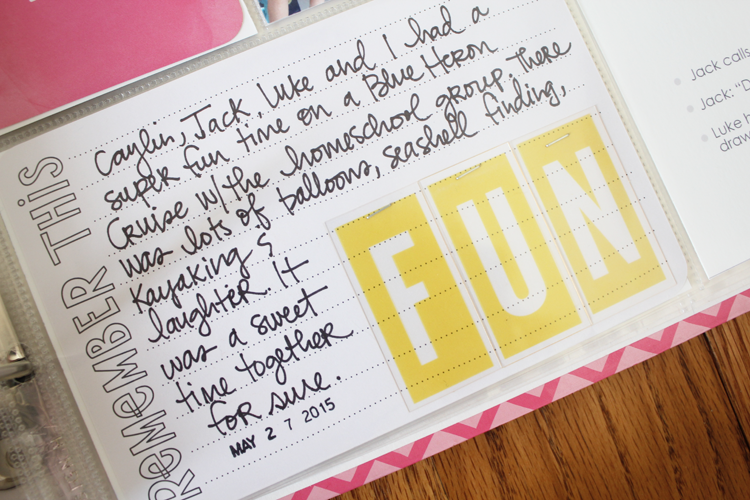 REMEMBER THIS
Caylin, Jack, Luke and I had a
super fun time on a Blue Heron
Cruise w/the homeschool group. There
was lots of balloons, seashell finding,
kayaking &
laughter. It
was a sweet
time together
for sure.
MAY 2 7 2015
FUN
Jack calls
Jack: "D
Luke h
draw